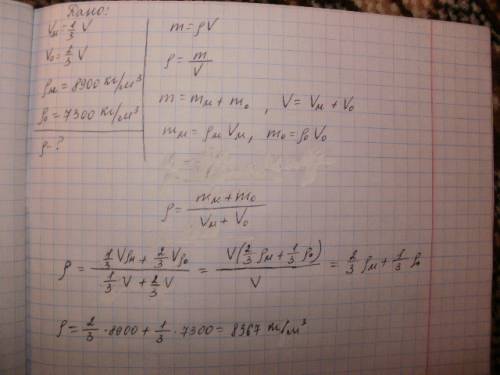 Дано:
Vм = 1/3 V
V₀ = 2/3 V
ρм = 8900 кг/м³
ρ₀ = 7300 кг/м³
ρ - ?
m = ρV
ρ = m/V
m = mм + m₀ , V = Vм + V₀
mм = ρм Vм, m₀ = ρ₀ V₀
ρ = (mм + m₀)/(Vм + V₀)
ρ = (1/3 Vρм + 2/3 Vρ₀)/(1/3 V + 2/3 V) = V(2/3 ρм + 1/3 ρ₀)/V = 2/3 ρм + 1/3 ρ₀
ρ = 2/3 · 8900 + 1/3 · 7300 = 8367 кг/м³